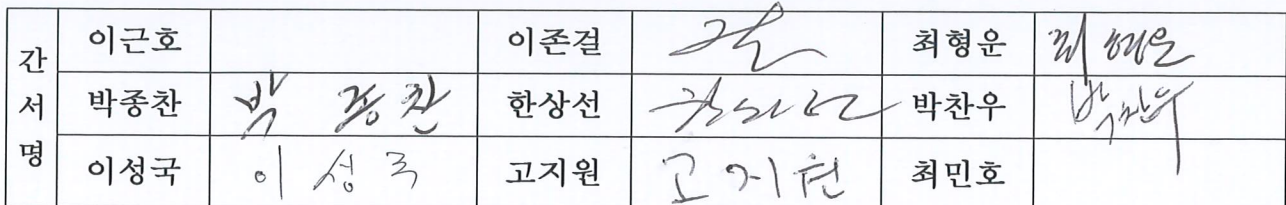 간 이근호 이존걸 걸 최형운 최형운
서 박종찬 박 종찬 한상선 한상선 박찬우 박찬우
명 이성국 이성국 고지원 고지원 최민호